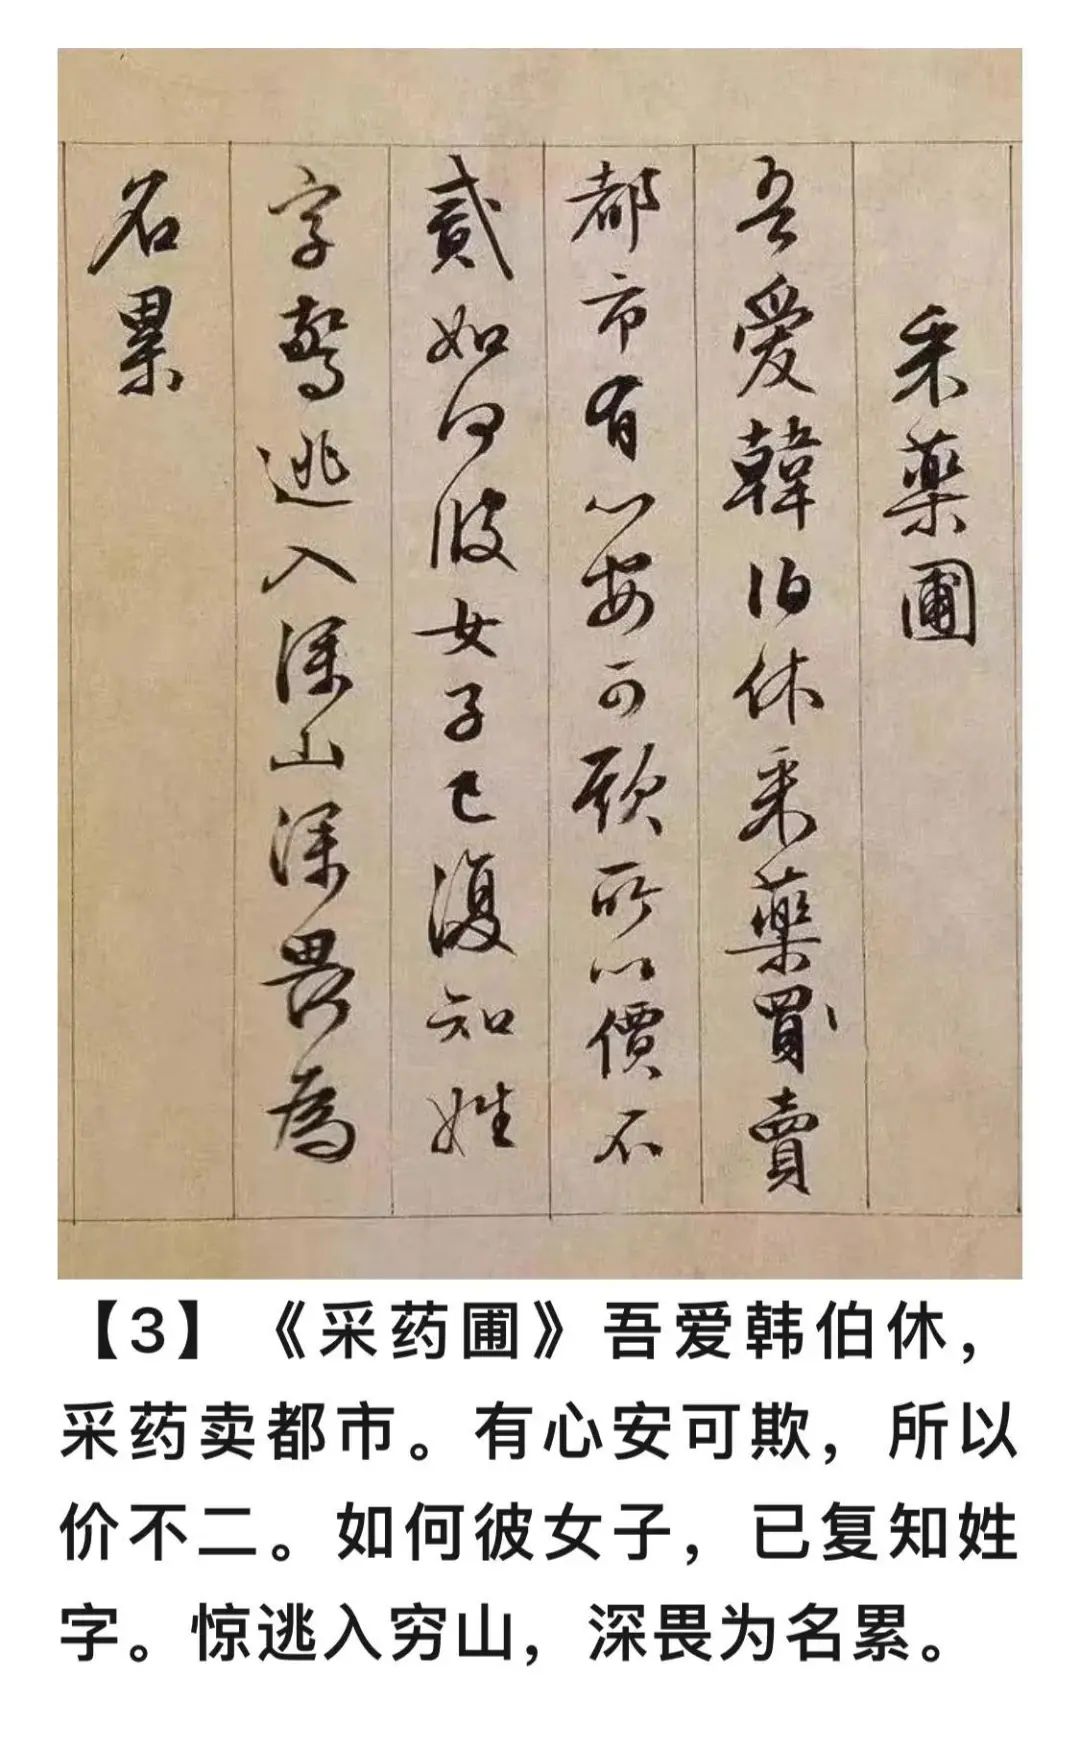 采藥圃
吾愛韓伯休采藥買賣
都市有心安可欺所以價不
貳如何彼女子已復知姓
字驚逃入深山深畏為
名累
【3】《采药圃》吾爱韩伯休，
采药卖都市。有心安可欺，所以
价不二。如何彼女子，已复知姓
字。惊逃入穷山，深畏为名累。